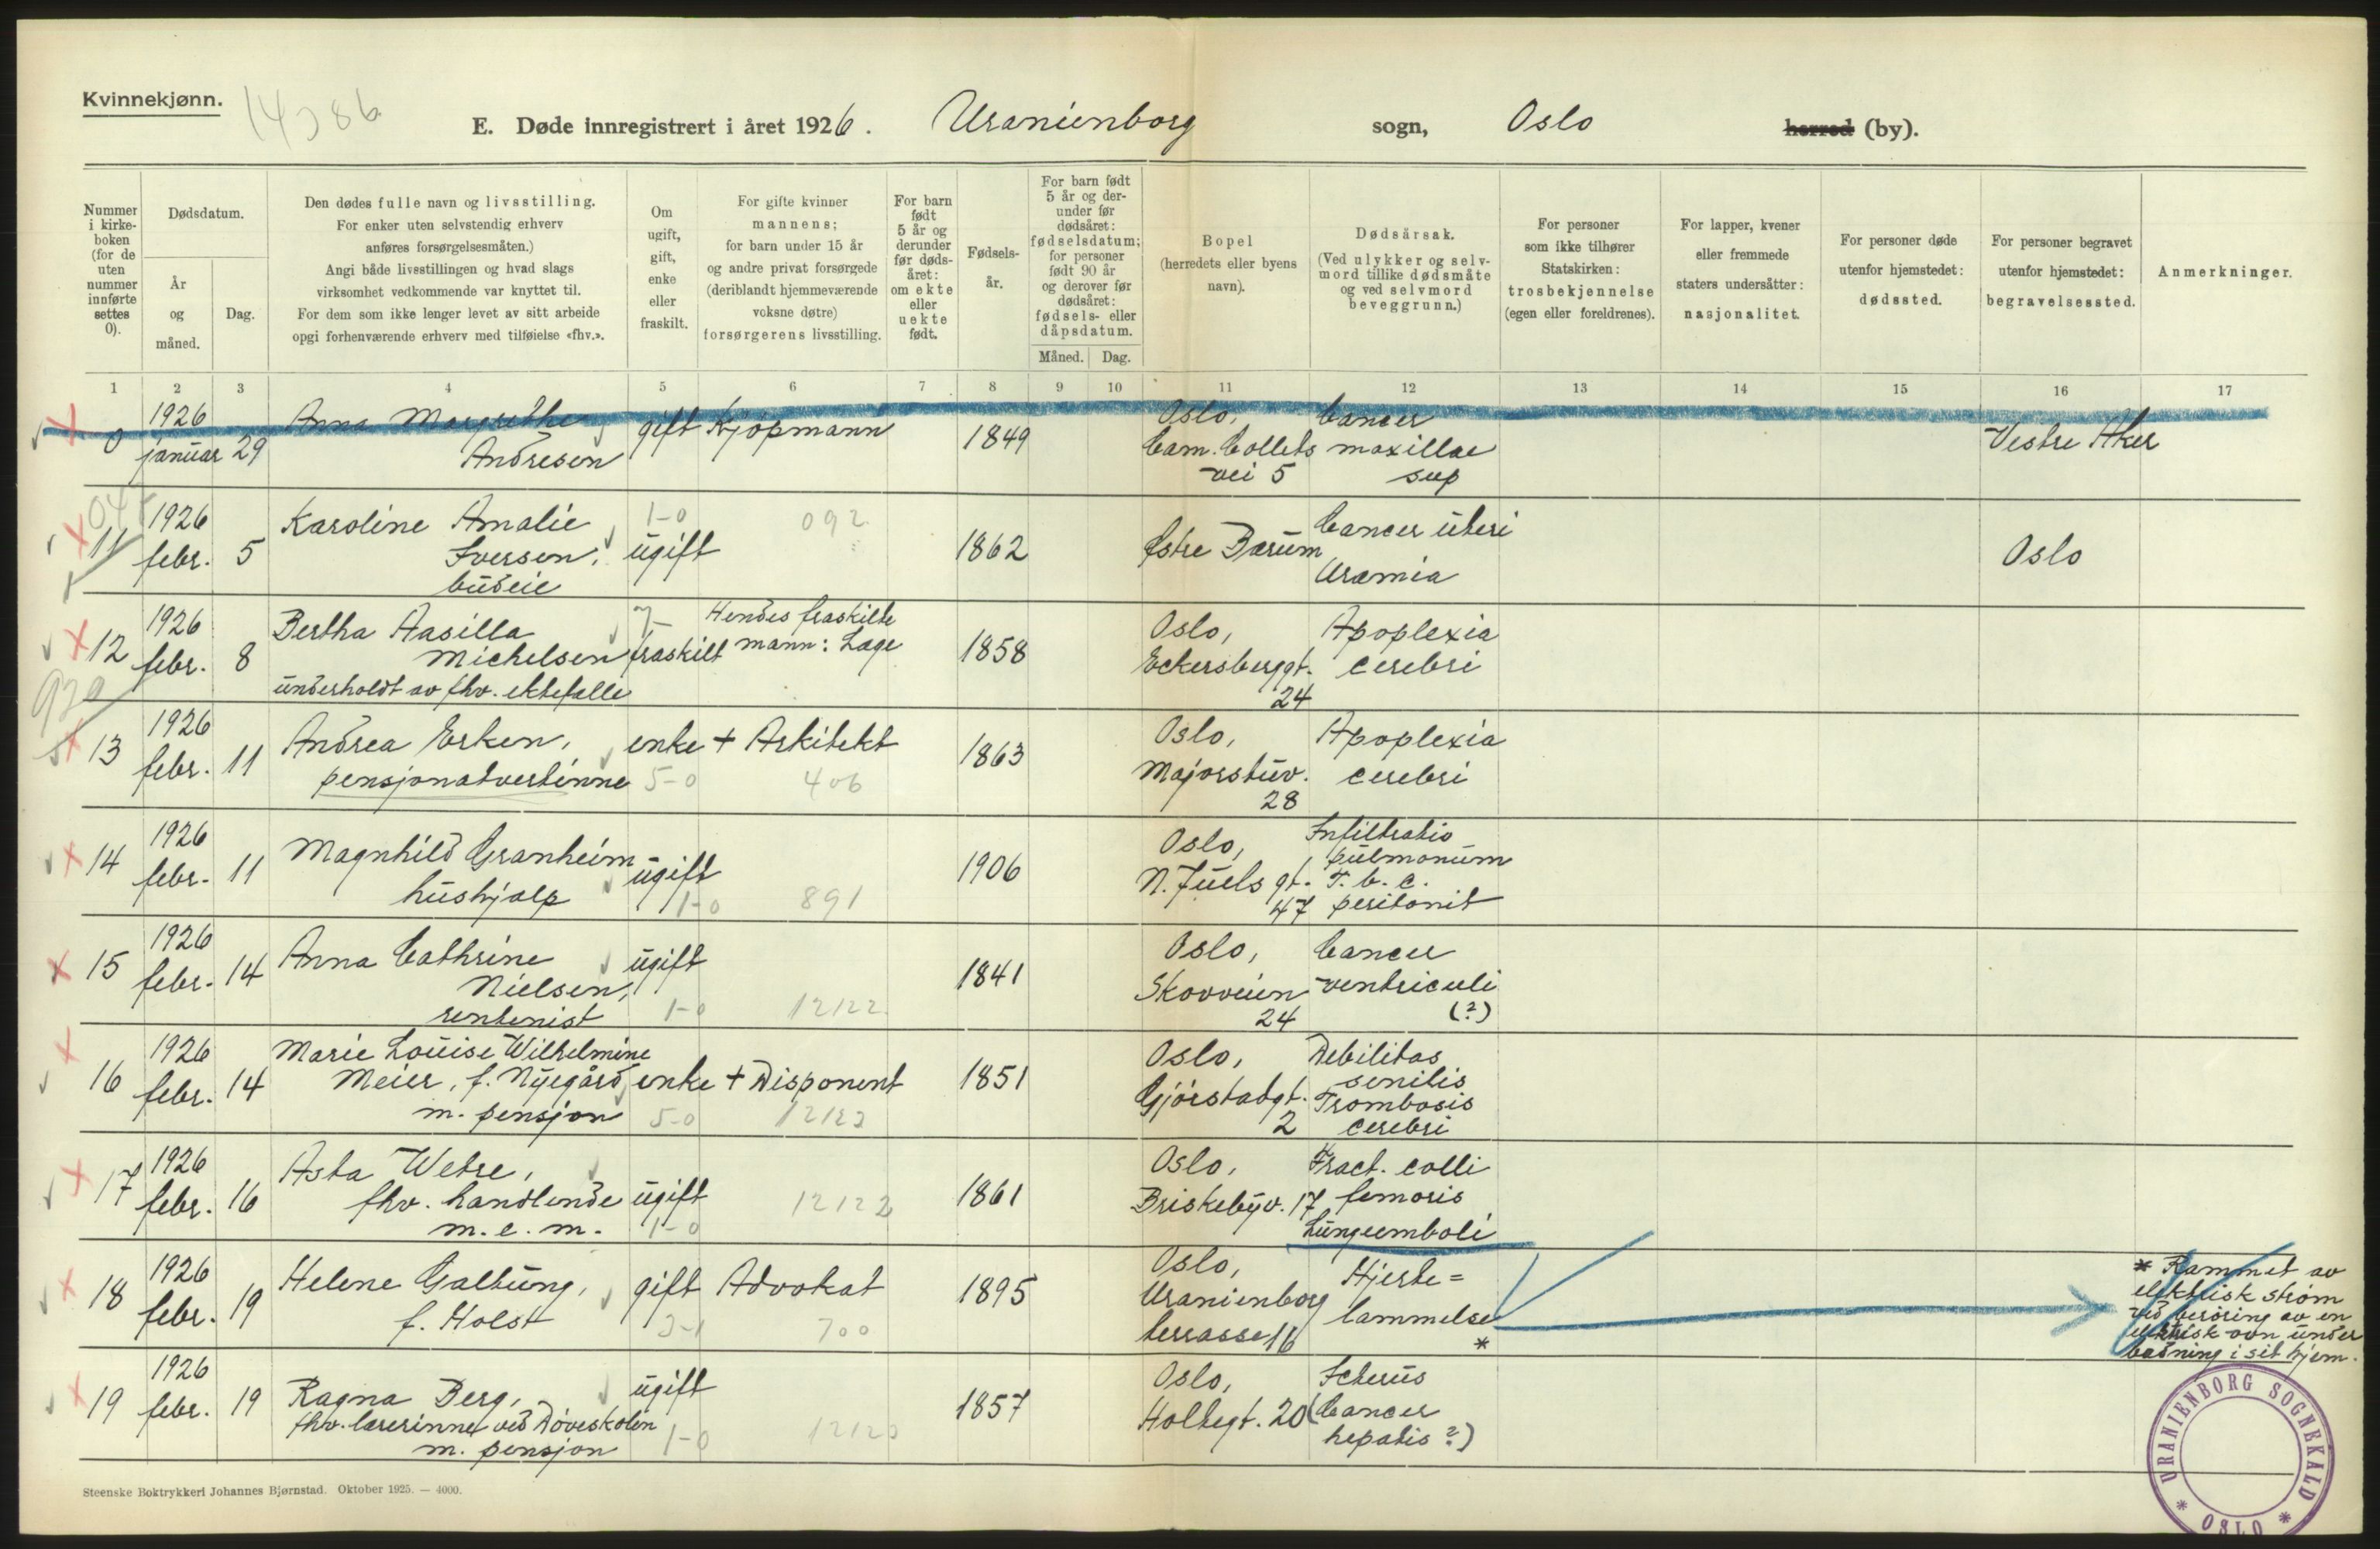 Kvinnekjønn.
E. Døde innregistrert i året 1926. Uranienborg sogn, Oslo herred (by).
Nummer i kirke-boken (for de uten nummer innførte settes 0).
Dødsdatum.
År og måned.
Dag.
Den dødes fulle navn og livsstilling.
For enker uten selvstendig erhverv
anføres forsørgelsesmåten.)
Angi både livsstillingen og hvad slags
virksomhet vedkommende var knyttet til.
For dem som ikke lenger levet av sitt arbeide
opgi forhenværende erhverv med tilføielse «fhv.».
Om ugift, gift, enke eller fraskilt.
For gifte kvinner
mannens;
for barn under 15 år
og andre privat forsørgede
(deriblandt hjemmeværende
voksne døtre)
forsørgerens livsstilling.
For barn født 5 år og derunder før døds-året: om ekte eller uekte født.
Fødsels-år.
For barn født 5 år og der-under før dødsåret: fødselsdatum; for personer født 90 år og derover før dødsåret: fødsels- eller dåpsdatum.
Måned. Dag.
Bopel
(herredets eller byens
navn).
Dødsårsak.
(Ved ulykker og selv-
mord tillike dødsmåte
og ved selvmord
beveggrunn.)
For personer
som ikke tilhører
Statskirken:
trosbekjennelse
(egen eller foreldrenes).
For lapper, kvener
eller fremmede
staters undersåtter:
nasjonalitet.
For personer døde
utenfor hjemstedet:
dødssted.
For personer begravet
utenfor hjemstedet:
begravelsessted.
Anmerkninger.
1 2 3 4 5 6 7 8 9 10 11 12 13 14 15 16 17
0 1926 januar 29 Anna Margrethe Andresen gift Kjøpmann 1849 Oslo, Cam. Colletts vei 5 Cancer maxillae sup Vestre Aker
11 1926 febr. 5 Karoline Amalie Iversen, budeie 1-0 ugift 092 1862 Østre Bærum Cancer uteri Uræmia Oslo
12 1926 febr. 8 Bertha Aasilla Michelsen underholdt av fhv. ektefelle fraskilt Hendes fraskilte mann: Læge 1858 Oslo, Eckersberggt. 24 Apoplexia cerebri
13 1926 febr. 11 Andrea Erken, pensjonatvertinne enke + Arkitekt 5-0 406 1863 Oslo, Majorstuv. 28 Apoplexia cerebri
14 1926 febr. 11 Magnhild Granheim hushjælp ugift 1-0 891 1906 Oslo, N. Juels gt. 47 Infiltratio pulmonum T. b. c. peritonit
15 1926 febr. 14 Anna Cathrine Nielsen, rentenist ugift 1-0 12122 1841 Oslo, Skovveien 24 Cancer ventriculi (?)
16 1926 febr. 14 Marie Louise Wilhelmine Meier, f. Nyegård, m. pensjon enke + Disponent 5-0 1851 Oslo, Gjörstadgt. 2 Debilitas senilis Trombosis cerebri
17 1926 febr. 16 Asta Wetre, fhv. handlende m. e. m. ugift 1-0 12122 1861 Oslo, Briskebyv. 17 Fract. colli femoris Lungeemboli
18 1926 febr. 19 Helene Galtung, f. Holst gift Advokat 700 1895 Oslo, Uranienborg terrasse 16 Hjerte=lammelse *
* Rammet av
elektrisk strøm
ved berøring av en
elektrisk ovn under
badning i sit hjem.
19 1926 febr. 19 Ragna Berg, fhv. lærerinne ved Døveskolen m. pensjon ugift 1-0 1857 Oslo, Holtegt. 20 Icterus (Cancer hepatis?)
Steenske Boktrykkeri Johannes Bjørnstad. Oktober 1925. — 4000.
URANIENBORG SOGNEKALD * OSLO *